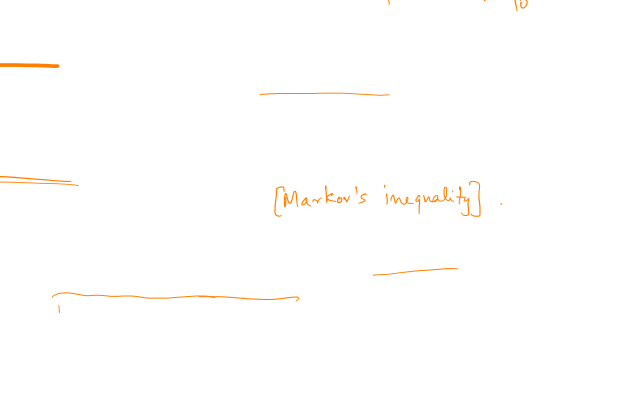 [Markov's inequality].